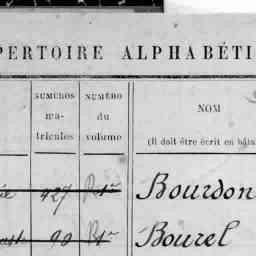 PERTOIRE ALPHABÉTI
NUMÉROS
ma-
tricules
NUMÉRO
du
volume
NOM
(Il doit être écrit en bâta
427 Bourdon
90 Bourel